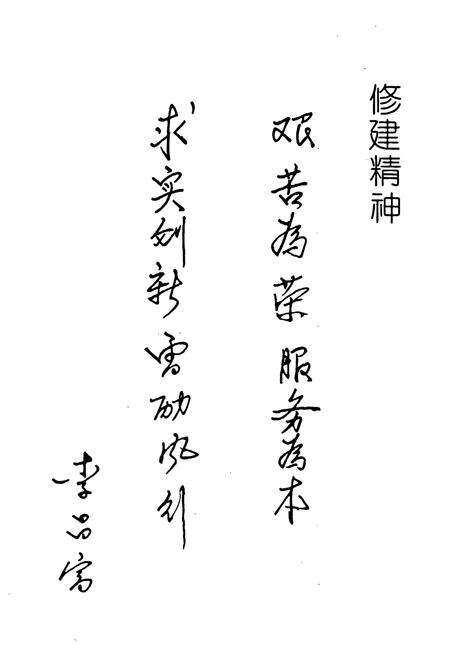 修建精神
艰苦为荣服务为本
求实创新雷励风行
李昌富